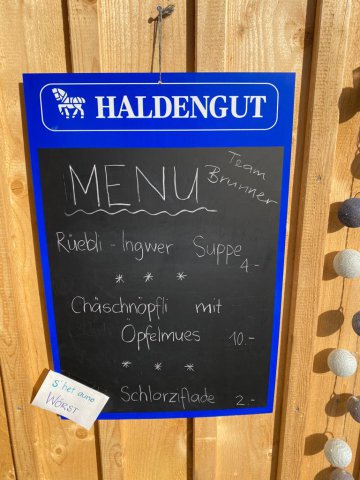 HALDENGUT
MENU
Team
Brunner
Rüebli - Ingwer Suppe
4.-
* * *
Chäschnöpfli mit
Öpfelmues 10.-
* * *
Schlorziflade 2.-
S'het auno
WÖRST